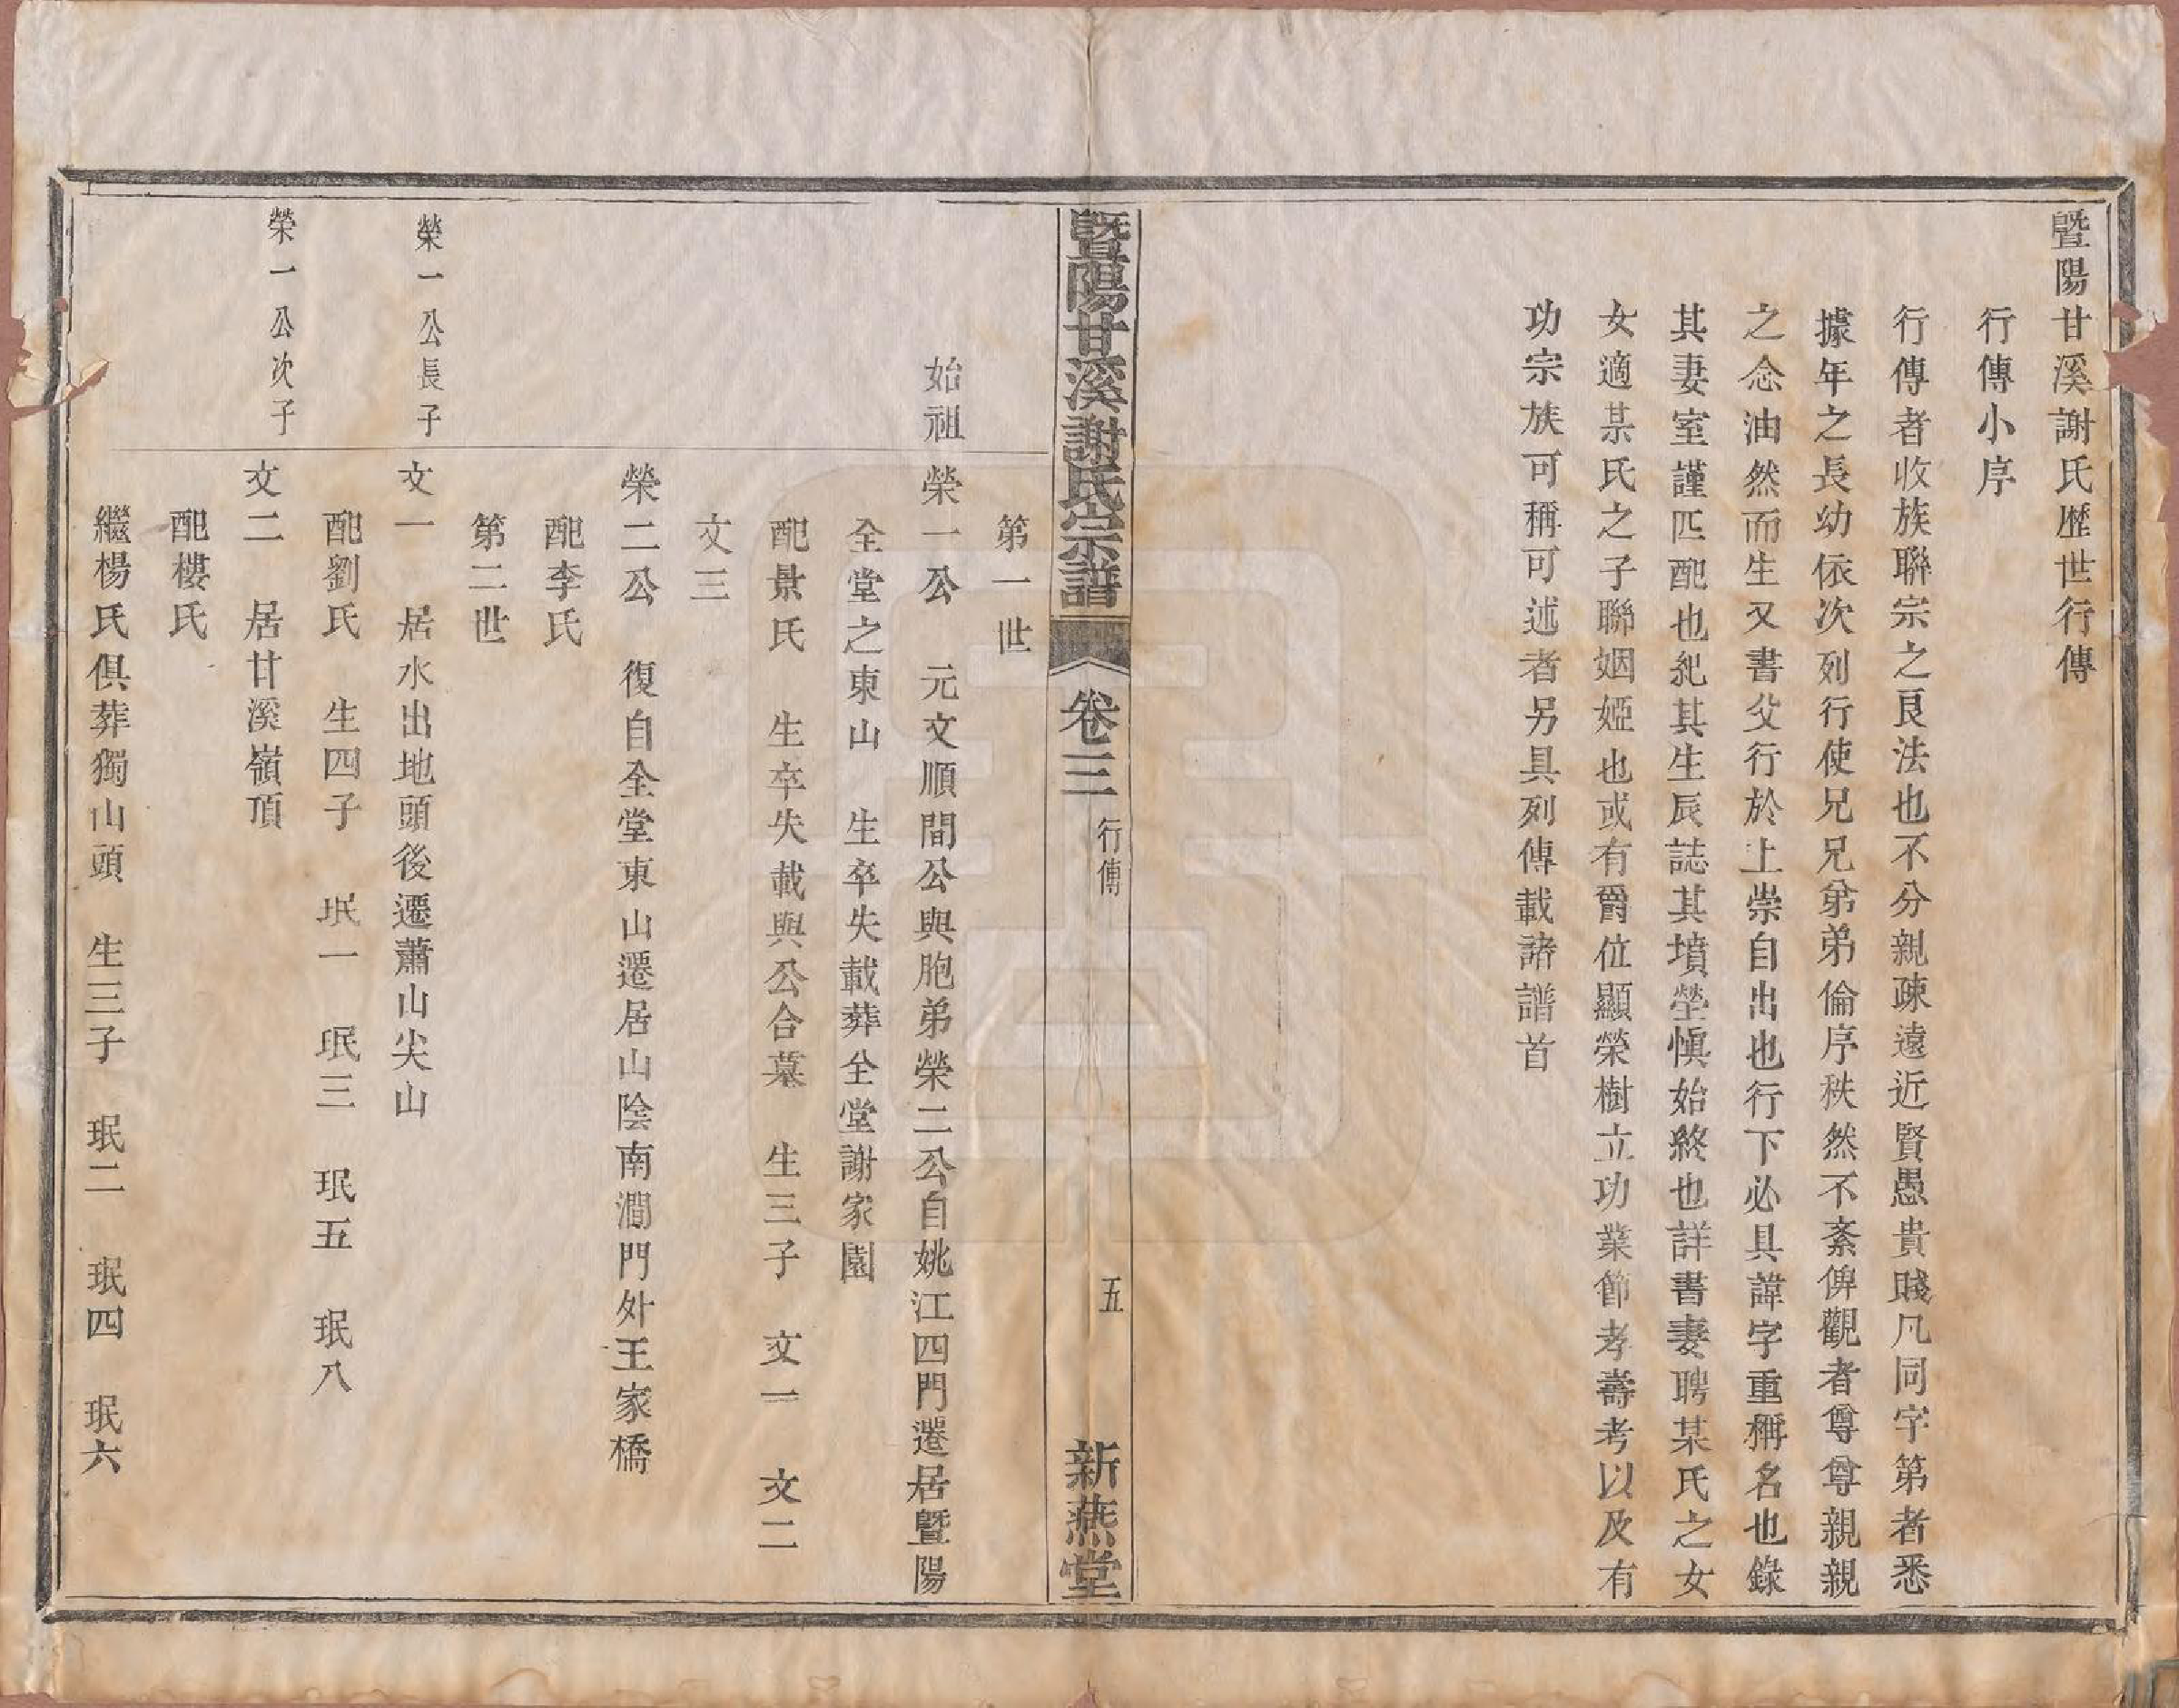 暨陽甘溪謝氏歷世行傳
行傳小序
行傳者收族聯宗之良法也不分親疎遠近賢愚貴賤凡同字第者悉
據年之長幼依次列行使兄兄弟弟倫序秩然不紊俾觀者尊尊親親
之念油然而生又書父行於上崇自出也行下必具諱字重稱名也錄
其妻室謹匹配也紀其生辰誌其墳塋慎始終也詳書妻聘某氏之女
女適某氏之子聯姻婭也或有爵位顯榮樹立功業節孝壽考以及有
功宗族可稱可述者另具列傳載諸譜首
暨陽甘溪謝氏宗譜 卷三 行傳 五 新燕堂
第一世
始祖 榮一公 元文順間公與胞弟榮二公自姚江四門遷居暨陽
全堂之東山 生卒失載葬全堂謝家園
配景氏 生卒失載與公合墓 生三子 文一 文二
文三
榮二公 復自全堂東山遷居山陰南澗門外王家橋
配李氏
第二世
榮一公長子 文一 居水出地頭後遷蕭山尖山
配劉氏 生四子 珉一 珉三 珉五 珉八
榮一公次子 文二 居甘溪嶺頂
配樓氏
繼楊氏俱葬獨山頭 生三子 珉二 珉四 珉六